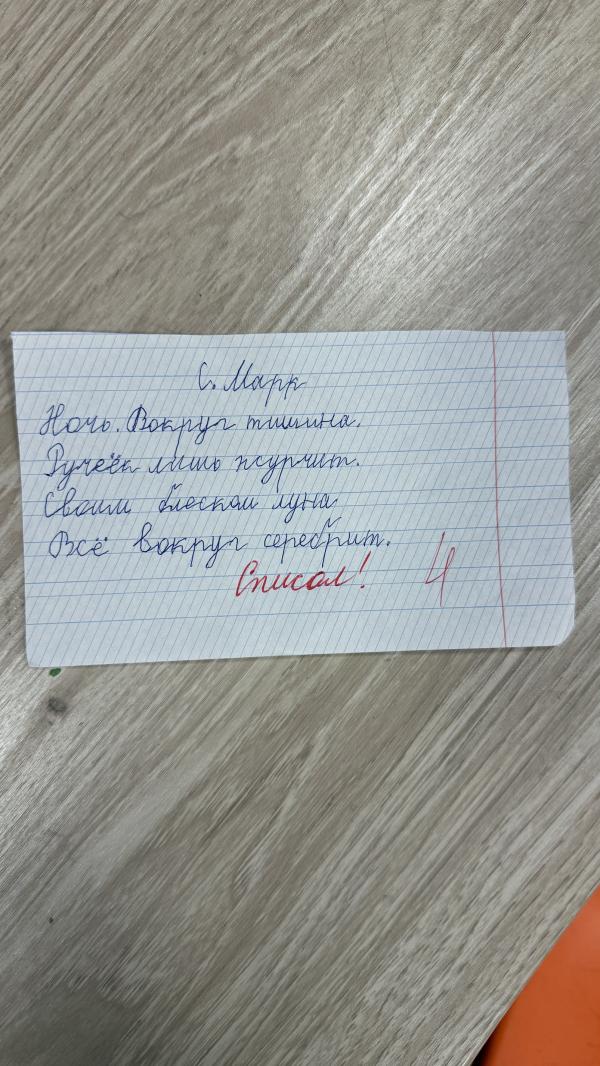 С. Марк
Ночь. Вокруг тишина.
Ручеёк лишь журчит.
Своим блеском луна
Всё вокруг серебрит.
Списал! 4